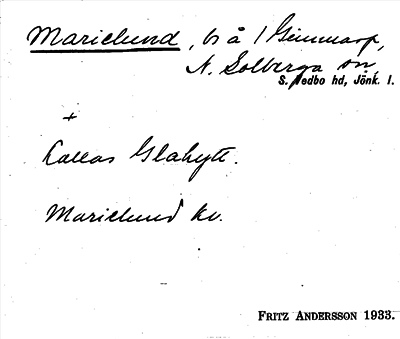 Mariclund, bs å 1 Gimmarp,
N. Solberga sn,
S. Vedbo hd, Jönk. l.
+
Kallas Glahytt.
Mariclund kv.
FRITZ ANDERSSON 1933.